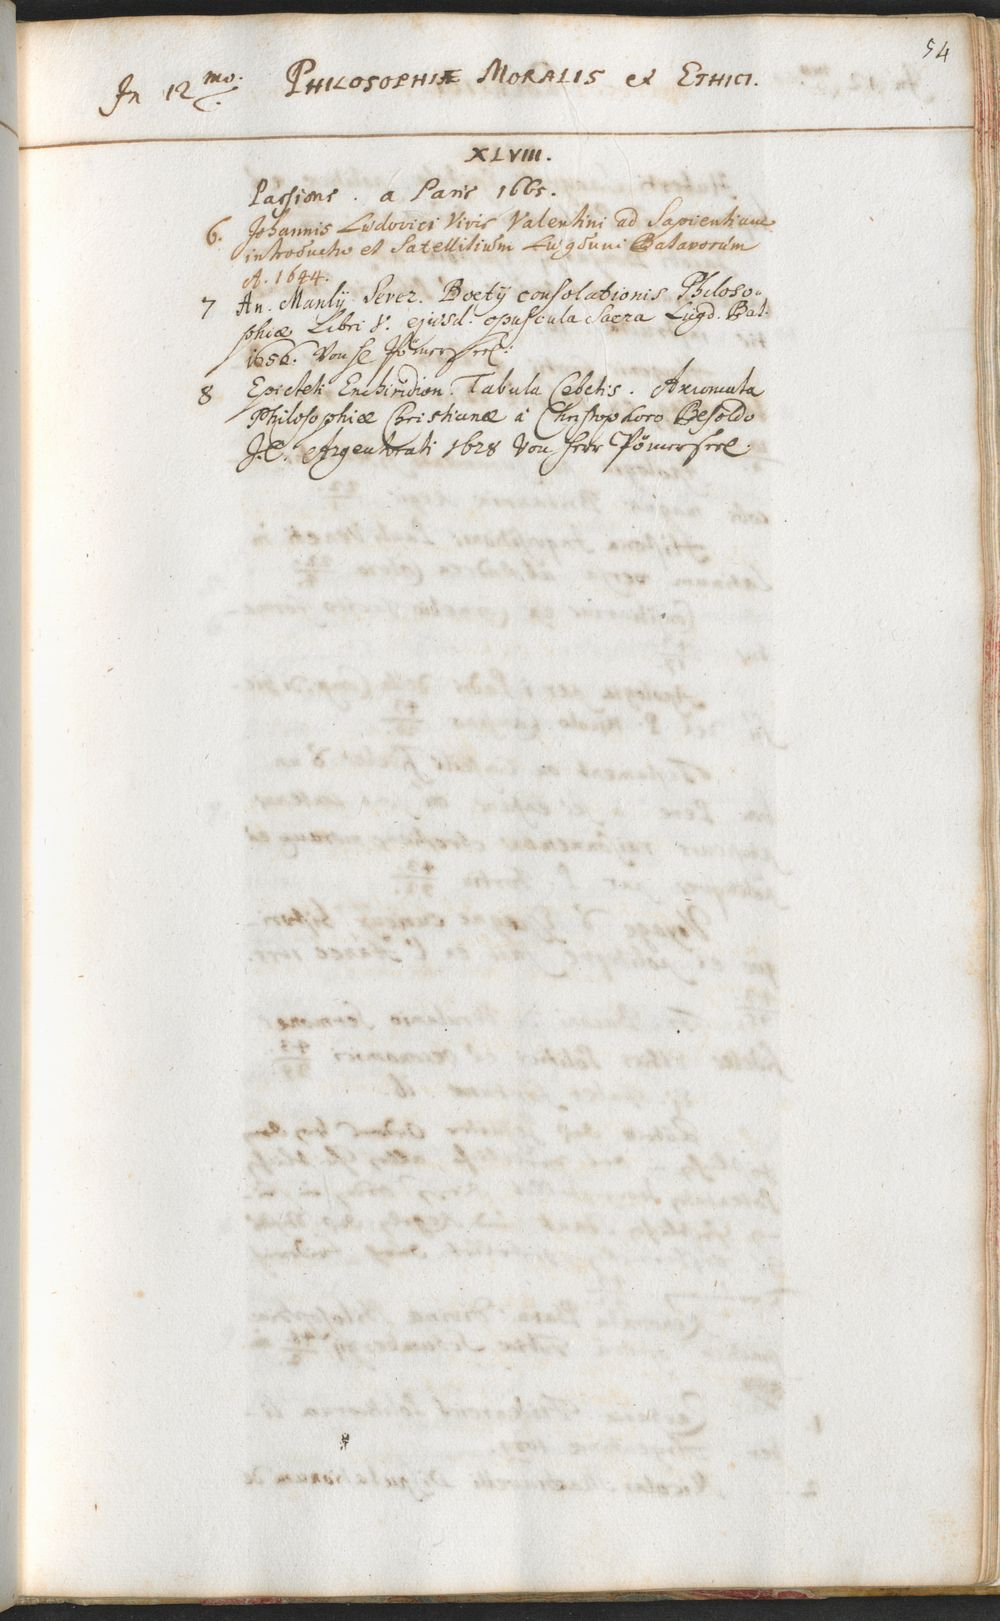 54
In 12mo. PHILOSOPHIÆ MORALIS et ETHICI.
XLVIII.
Passions. a Paris 1665.
6. Johannis Ludovici Vivis Valentini ad Sapientiam
introductio et Satellitium Lugduni Batavorum
A. 1644.
7 An. Manlij Sever. Boetij consolationis Philoso-
phiæ Libri V. ejusd. opuscula Sacra Lugd. Bat.
1656. Von H
8 Epicteti Enchiridion. Tabula Cebetis. Axiomata
Philosophiæ Christianæ à Christophoro Besoldo
J.C. Argentorati 1628 Von Herr